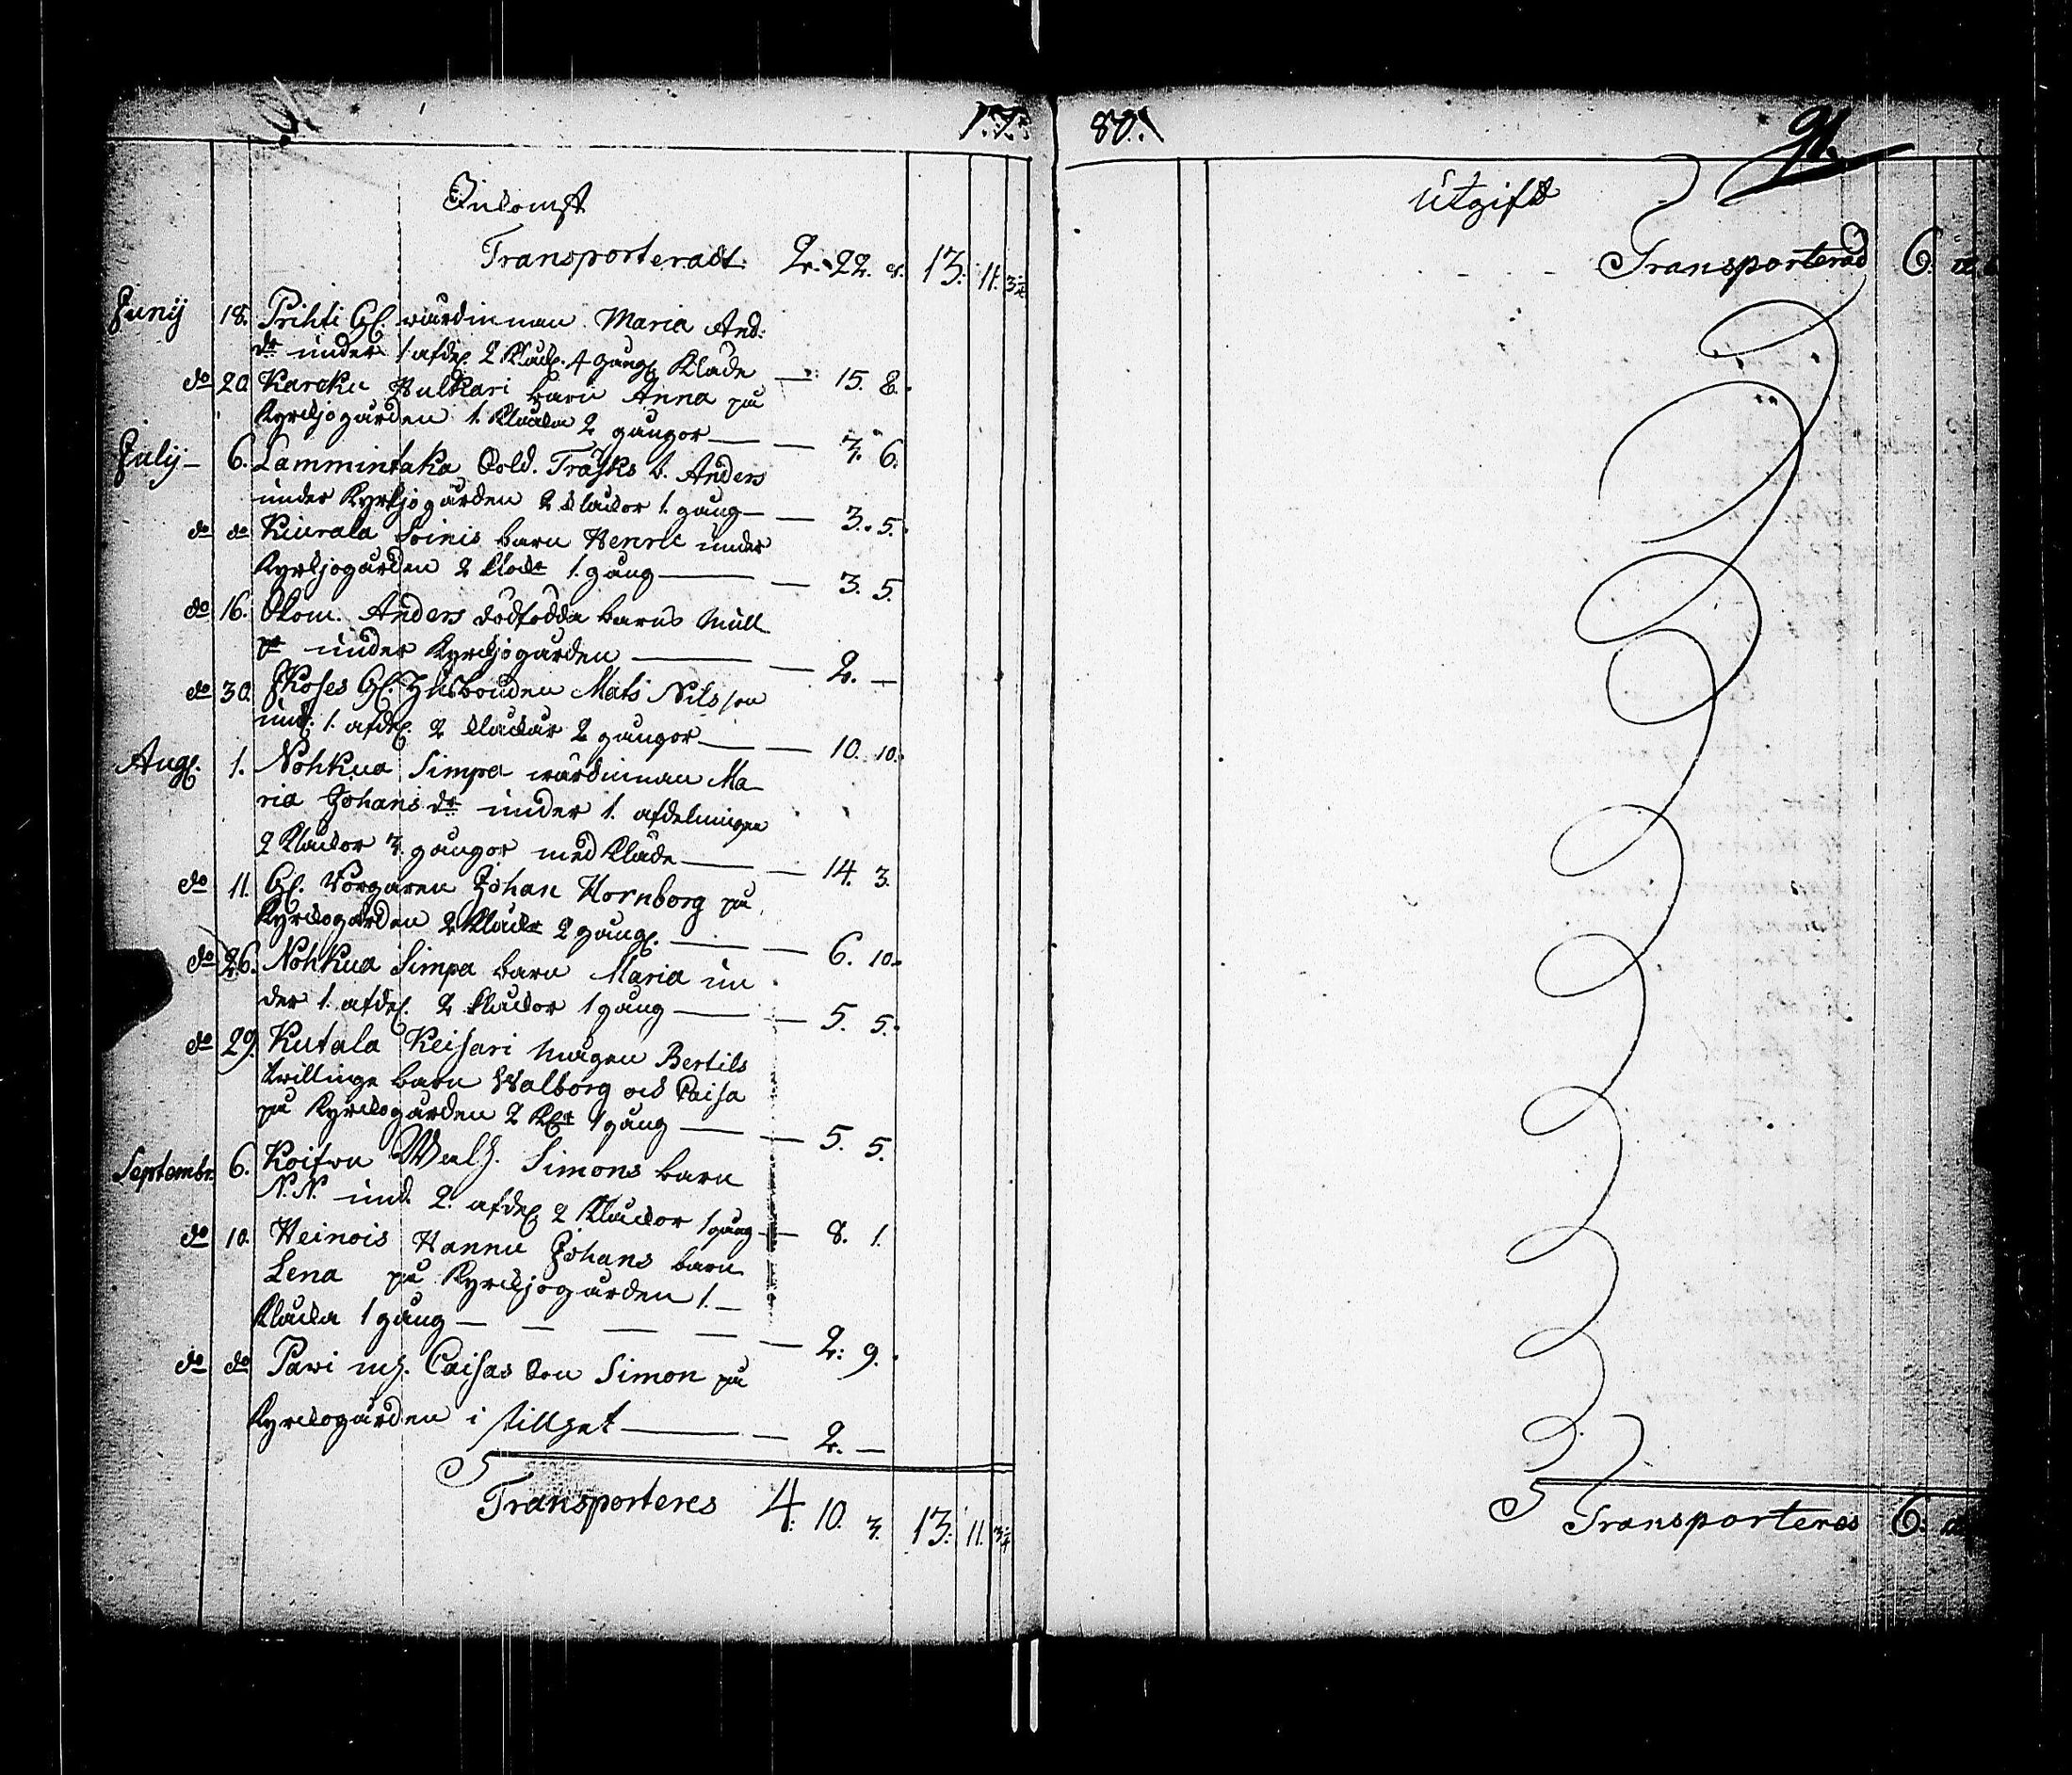 17 80.
91.
Inkomst
Transporteradt. 2. 22. 8. 13. 11. 3¾
Junij 18. Prihti Gl. wärdinnan Maria And:
dr under 1 afdel. 2 Klack. 4 gång. Kläde — 15. 8.
do 20. Karcku Hulkkari barn Anna på
Kyrkjogården 1. Klacka 2 gångor — 3. 6.
Julij 6. Lammintaka Sold. Träsks b. Anders
under Kyrkjogården 2 klackor 1. gång — 3. 5.
do do Kiurala Soinis barn Henric under
Kyrkjogården 2 klockr 1. gång — 3. 5.
do 16. Anders dödfödda barns mull
under Kyrkjogården — 2. —
do 30. Gl. Husbonden Mats Nilsson
und. 1. afdel. 2 klackar 2 gångor — 10. 10.
Aug. 1. Nohkua Simpa wärdinnan Ma-
ria Johans dr under 1. afdelningen
2 Klackor 3. gångor med Kläde — 14. 3.
do 11. Gl. Johan Hornborg på
Kyrckogården 2 Klackr 2 gång. — 6. 10.
do 26. Nohkua Simpa barn Maria un
der 1. afdel. 2 klackor 1 gång — 5. 5.
do 29. Kutala Keisari mågen Bertils
twillinge barn Walborg och Caisa
på Kyrckogården 2 Klr 1 gång — 5. 5.
Septembr. 6. Koifvu Simons barn
N.N. und. 2. afdel. 2 Klackor 1 gång — 8. 1.
do 10. Heinois Hannu Johans barn
Lena på Kyrckjogården 1.
Klacka 1 gång — 2. 9.
do do Pawi Caisas Son Simon på
Kyrckogården i stillhet — 2. —
Transporteres 4. 10. 3. 13. 11. 3¾
Utgift
Transporterad 6.
Transporteres 6.